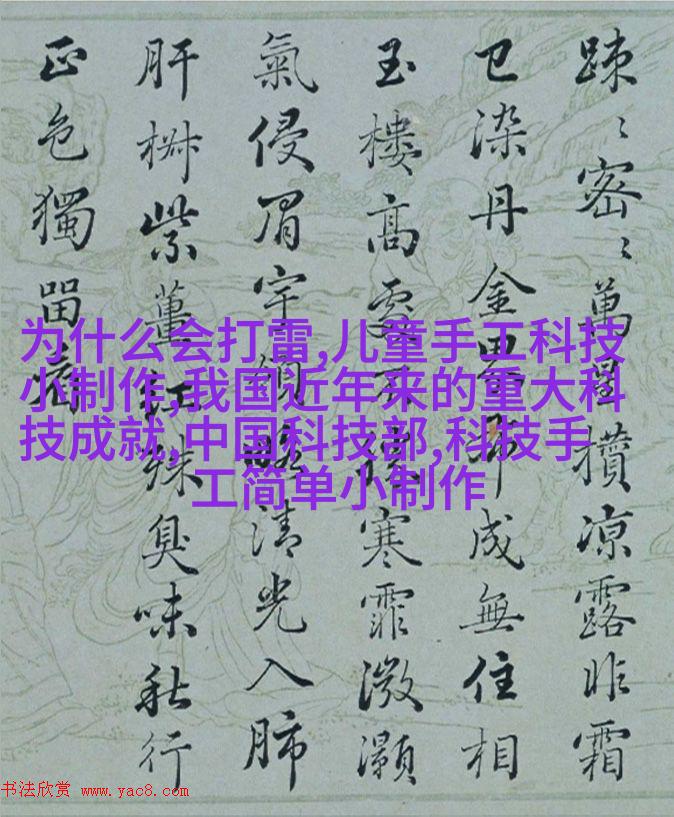 踈〻密〻萬星攢凉露昨霜
已染丹金界成無住相
玉樓高處不勝寒霏溦灝
氣侵眉宇領略清光入肺
肝椒紫薑紅殊臭味秋行
正色獨留
为什么会打雷,儿童手工科技
小制作,我国近年来的重大科
技成就,中国科技部,科技手
工简单小制作
书法欣赏 www.yac8.com